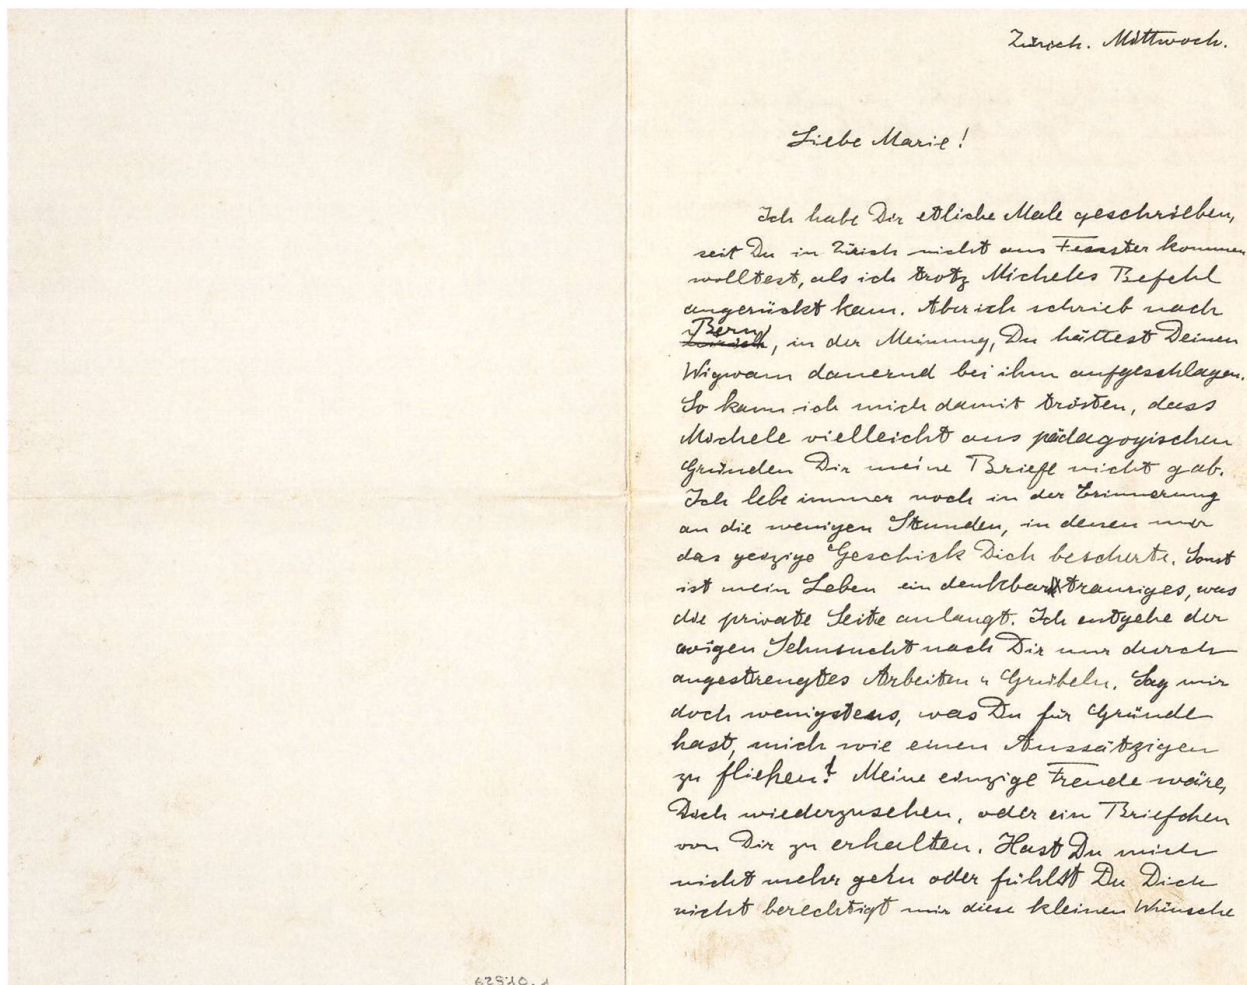 Zürich. Mittwoch.
Liebe Marie!
Ich habe Dir etliche Male geschrieben,
seit Du in Zürich nicht ans Fenster kommen
wolltest, als ich trotz Micheles Befehl
angerückt kam. Aber ich schrieb nach
Bern
Zürich, in der Meinung, Du hättest Deinen
Wigwam dauernd bei ihm aufgeschlagen.
So kann ich mich damit trösten, dass
Michele vielleicht aus pädagogischen
Gründen Dir meine Briefe nicht gab.
Ich lebe immer noch in der Erinnerung
an die wenigen Stunden, in denen mir
das geizige Geschick Dich bescherte. Sonst
ist mein Leben ein denkbar trauriges, was
die private Seite anlangt. Ich entgehe der
ewigen Sehnsucht nach Dir nur durch
angestrengtes Arbeiten u Grübeln. Sag mir
doch wenigstens, was Du für Gründe
hast, mich wie einen Aussätzigen
zu fliehen! Meine einzige Freude wäre,
Dich wiederzusehen, oder ein Briefchen
von Dir zu erhalten. Hast Du mich
nicht mehr gern oder fühlst Du Dich
nicht berechtigt mir diese kleinen Wünsche
62510.1